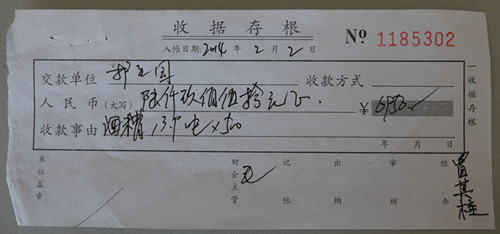 收据存根
入帐日期:2014年2月2日
№ 1185302
交款单位 收款方式
人民币(大写) 陆仟玖佰伍拾元正. ¥ 6950.
收款事由 酒精 13.9吨×500
年 月 日
一收据存根
单位盖章
财会主管
记帐
出纳
审核
经办